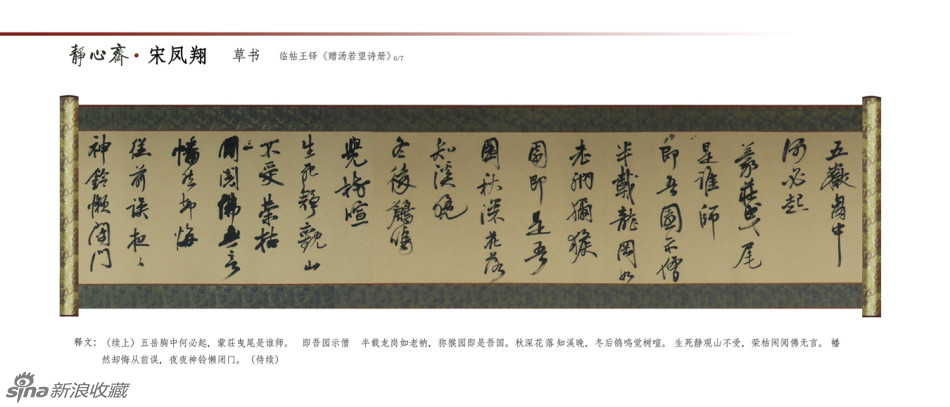 靜心齋·宋凤翔 草书 临帖王铎《赠汤若望诗册》6/7
五嶽胷中
河必起
蒙莊曳尾
是谁師
即吾園示僧
半截龍岡如
老衲獼猴
園即是吾
國秋深花落
知溪晚
冬後鶺鳴
覺樹暄
生死靜觀山
不受榮枯
閒閱佛無言
幡然却悔
從前誤夜夜
神鈴懶閉門
释文：（续上）五岳胸中何必起，蒙荘曳尾是谁师。 即吾园示僧 半载龙岗如老衲，弥猴园即是吾国。秋深花落知溪晚，冬后鸽鸣觉树喧。 生死静观山不受，荣枯闲阅佛无言。 幡
然却悔从前误，夜夜神铃懒闭门。（待续）
sina新浪收藏